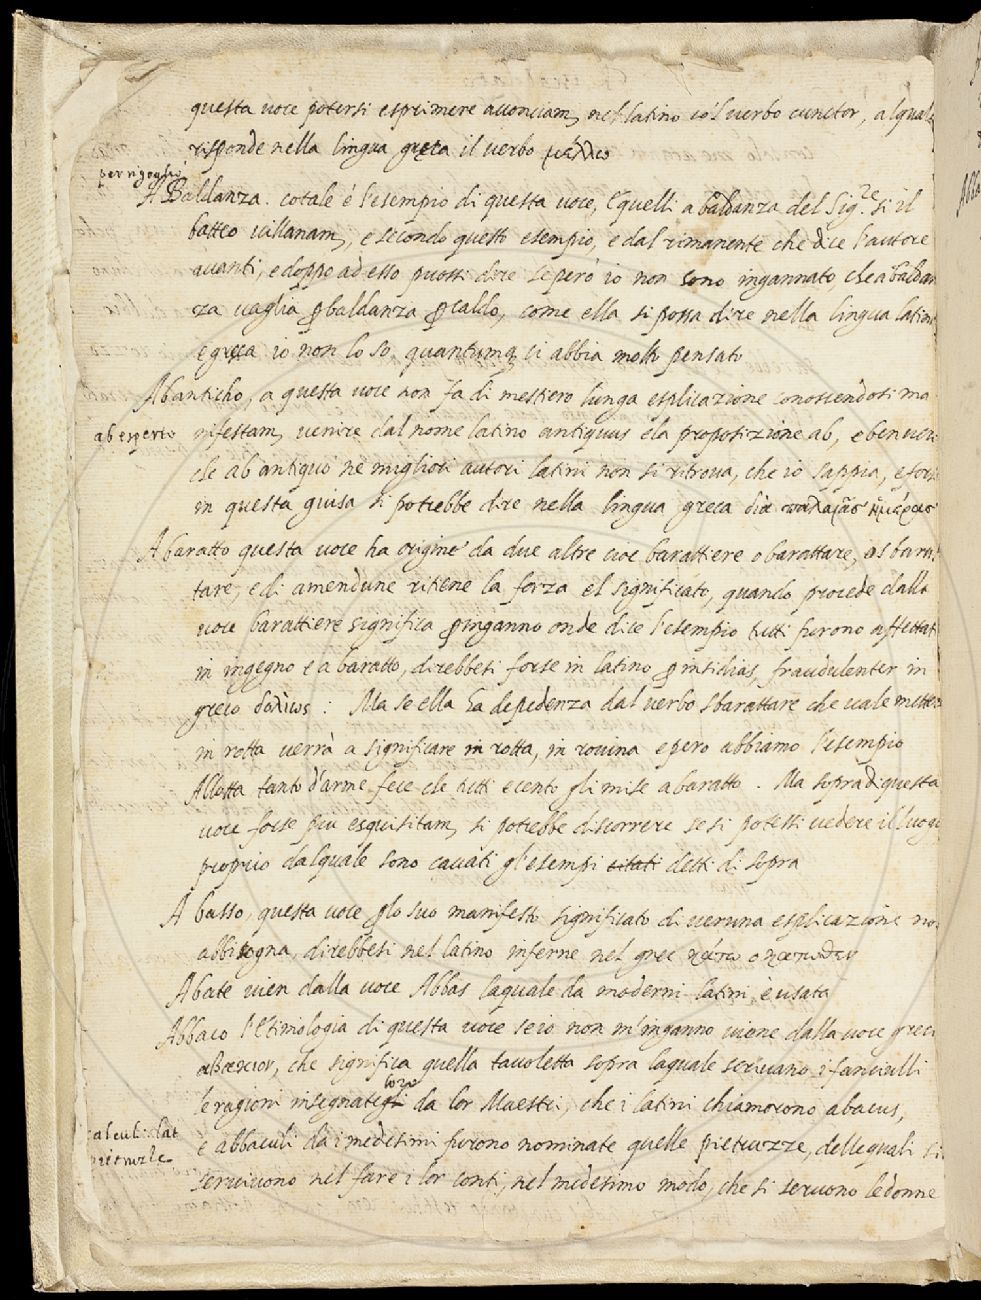 questa uoce potersi esprimere acconciam, nel latino co'l uerbo cunctor, a lquale
risponde nella lingua greca il uerbo μέλλω
per rigoglio
A Baldanza. cotale è l'esempio di questa uoce, E quelli a baldanza del Sig.re si il
batteo uillanam, e secondo questo esempio, e dal rimanente che dice l'autore
auanti, e doppo ad esso puossi dire se però io non sono ingannato, che a baldan
za uaglia p baldanza p caldo, come ella si possa dire nella lingua latina
e greca io non lo so quantunq ci abbia molto pensato
Abanticho, a questa uoce non fa di mestiero lunga esplicazione conoscendosi ma
ab esperto
nifestam, uenire dal nome latino antiquus e la proposizione ab, e ben uero
che ab antiquo ne migliori autori latini non si ritroua, che io sappia, e forse
in questa guisa si potrebbe dire nella lingua greca διὰ παλαιᾶσ ἡμέρασ
A baratto questa uoce ha origine da due altre cioè barattiere o barattare, o sbarat
tare, e di amendune ritiene la forza e'l significato, quando procede dalla
uoce barattiere significa p inganno onde dice l'esempio tutti furono assettati
in ingegno e a baratto, direbbesi forse in latino p insidias, fraudulenter in
greco δολίως : Ma se ella ha depedenza dal uerbo sbarattare che uale mettere
in rotta uerrà a significare in rotta, in rouina e pero abbiamo l'esempio
Allotta tanto d'arme fece che tutti e cento gli mise a baratto. Ma sopra di questa
uoce forse piu esquisitam, si potrebbe discorrere se si potessi uedere il luogo
proprio dalquale sono cauati gl'esempi citati detti di sopra
A basso, questa uoce p lo suo manifesto significato di ueruna esplicazione non
abbisogna, direbbesi nel latino inferne nel grec κάτω ο κατωθεν
Abate uien dalla uoce Abbas laquale da moderni latini e usata
Abbaco l'Etimologia di questa uoce se io non m'inganno uiene dalla uoce greca
αβακιον, che significa quella tauoletta sopra laquale scriuano i fanciulli
loro
le ragioni insegnategli da lor Maestri, che i latini chiamorono abacus,
calculi lat
pietruzze
e abbaculi da i medesimi furono nominate quelle pietruzze, delle quali si
seruiuono nel fare i lor conti, nel medesimo modo, che si seruono le donne